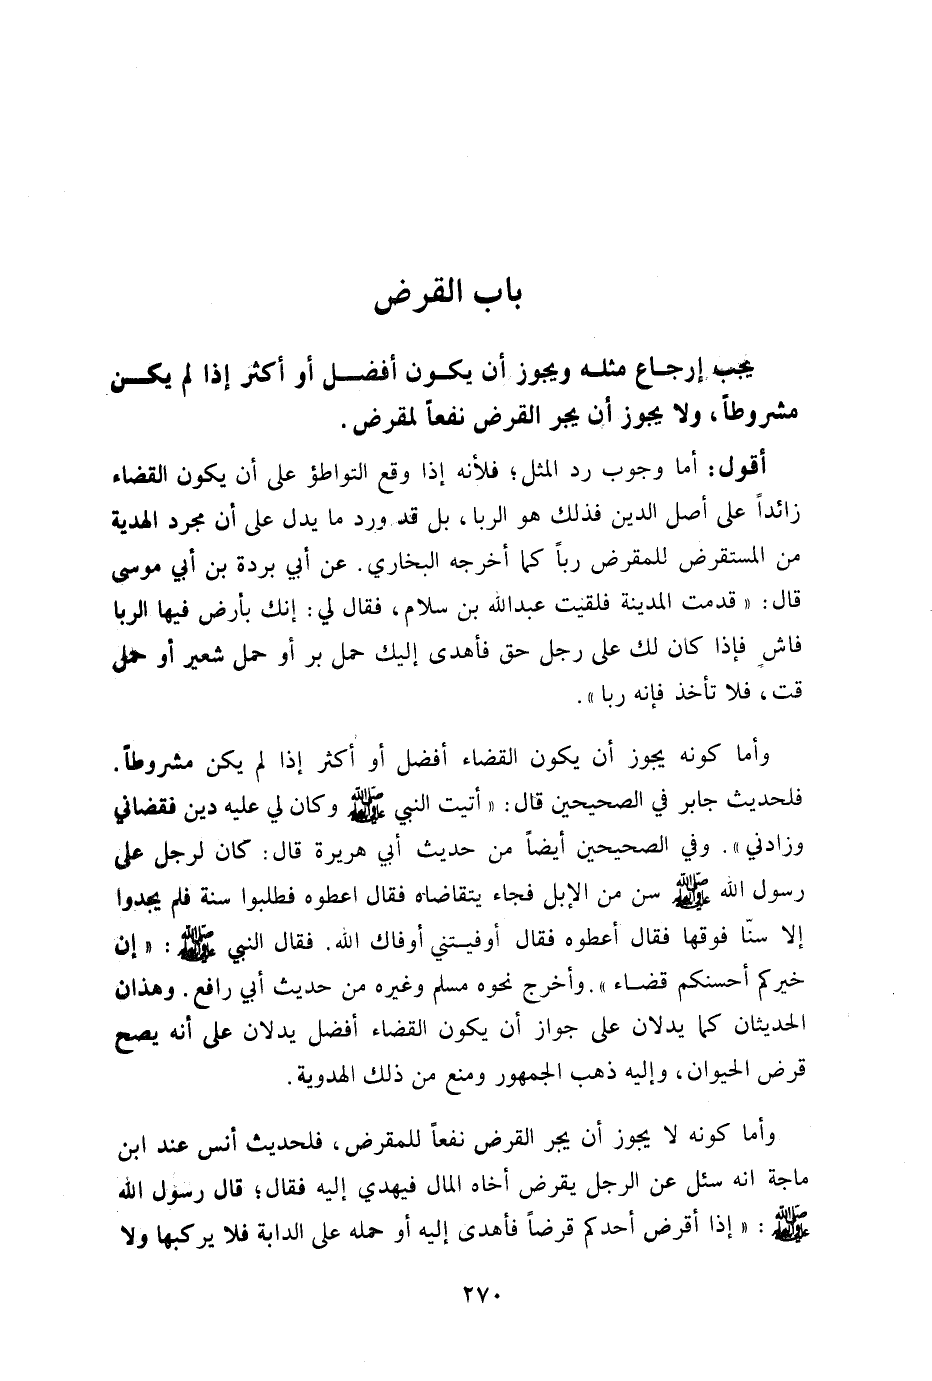 باب القرض
يجب إرجاع مثله ويجوز أن يكون أفضل أو أكثر إذا لم يكن
مشروطاً، ولا يجوز أن يجر القرض نفعاً لمقرض.
أقول: أما وجوب رد المثل؛ فلأنه إذا وقع التواطؤ على أن يكون القضاء
زائداً على أصل الدين فذلك هو الربا، بل قد ورد ما يدل على أن مجرد الهدية
من المستقرض للمقرض رباً كما أخرجه البخاري. عن أبي بردة بن أبي موسى
قال: « قدمت المدينة فلقيت عبدالله بن سلام، فقال لي: إنك بأرض فيها الربا
فاشٍ فإذا كان لك على رجل حق فأهدى إليك حمل بر أو حمل شعير أو حمل
قت، فلا تأخذ فإنه ربا».
وأما كونه يجوز أن يكون القضاء أفضل أو أكثر إذا لم يكن مشروطاً.
فلحديث جابر في الصحيحين قال: « أتيت النبي ﷺ وكان لي عليه دين فقضاني
وزادني». وفي الصحيحين أيضاً من حديث أبي هريرة قال: كان لرجل على
رسول الله ﷺ سن من الإبل فجاء يتقاضاه فقال اعطوه فطلبوا سنة فلم يجدوا
إلا سنّا فوقها فقال أعطوه فقال أوفيتني أوفاك الله. فقال النبي ﷺ : « إن
خيركم أحسنكم قضاء ».وأخرج نحوه مسلم وغيره من حديث أبي رافع. وهذان
الحديثان كما يدلان على جواز أن يكون القضاء أفضل يدلان على أنه يصح
قرض الحيوان، وإليه ذهب الجمهور ومنع من ذلك الهدوية.
وأما كونه لا يجوز أن يجر القرض نفعاً للمقرض، فلحديث أنس عند ابن
ماجة انه سئل عن الرجل يقرض أخاه المال فيهدي إليه فقال؛ قال رسول الله
ﷺ : « إذا أقرض أحدكم قرضاً فأهدى إليه أو حمله على الدابة فلا يركبها ولا
٢٧٠